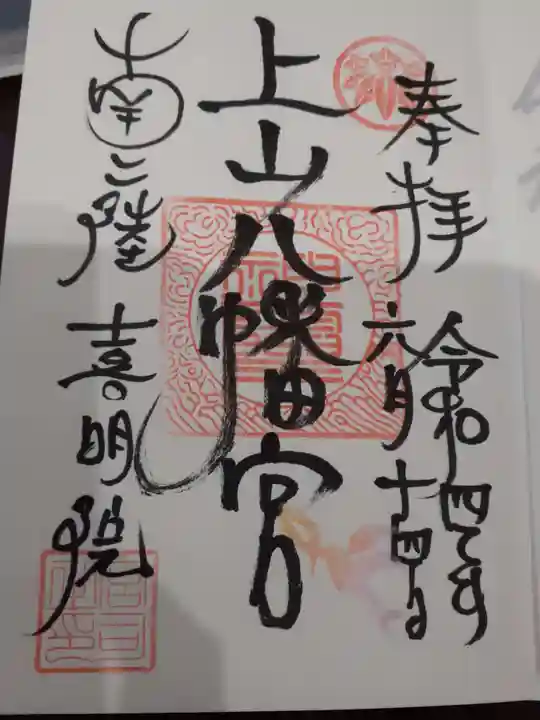 奉拝
令和四年
六月十四日
上山八幡宮
南三陸
喜明院